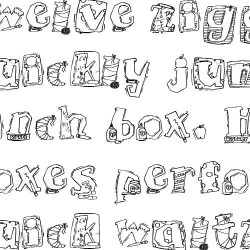 welve zigg
uickly jum
nch box. H
oxes perfo
uick walt